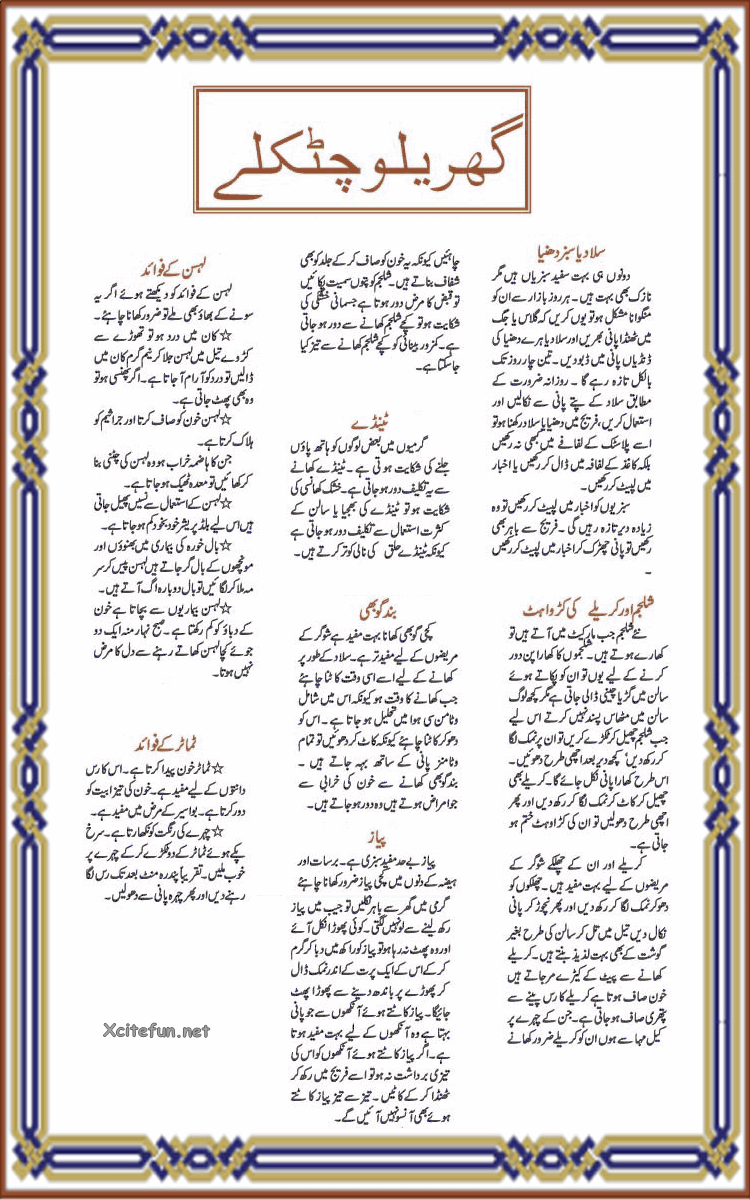 گھریلو چٹکلے
سلاد یا سبز دھنیا
دونوں ہی بہت سفید سبزیاں ہیں مگر
نازک بھی بہت ہیں۔ ہر روز بازار سے ان کو
منگوانا مشکل ہو تو یوں کریں کہ گلاس یا جگ
میں ٹھنڈا پانی بھریں اور سلاد یا ہرے دھنیا کی
ڈنڈیاں پانی میں ڈبو دیں۔ تین چار روز تک
بالکل تازہ رہے گا۔ روزانہ ضرورت کے
مطابق سلاد کے پتے پانی سے نکالیں اور
استعمال کریں، فریج میں دھنیا یا سلاد رکھنا ہو تو
اسے پلاسٹک کے لفافے میں بھی نہ رکھیں
بلکہ کاغذ کے لفافہ میں ڈال کر رکھیں یا اخبار
میں لپیٹ کر رکھیں۔
سبزیوں کو اخبار میں لپیٹ کر رکھیں تو وہ
زیادہ دیر تازہ رہیں گی۔ فریج سے باہر بھی
رکھیں تو پانی چھڑک کر اخبار میں لپیٹ کر رکھیں
۔
شلجم اور کریلے کی کڑواہٹ
نئے شلجم جب مارکیٹ میں آتے ہیں تو
کھارے ہوتے ہیں۔ شلجموں کا کھارا پن دور
کرنے کے لیے یوں تو ان کو پکاتے ہوئے
سالن میں گڑ یا چینی ڈالی جاتی ہے مگر کچھ لوگ
سالن میں مٹھاس پسند نہیں کرتے اس لیے
جب شلجم چھیل کر ٹکڑے کریں تو ان پر نمک لگا
کر رکھ دیں کچھ دیر بعد اچھی طرح دھوئیں۔
اس طرح کھارا پانی نکل جائے گا۔ کریلے بھی
چھیل کر کاٹ کر نمک لگا کر رکھ دیں اور پھر
اچھی طرح دھولیں تو ان کی کڑاوہٹ ختم ہو
جاتی ہے۔
کریلے اور ان کے چھلکے شوگر کے
مریضوں کے لیے بہت مفید ہیں۔ چھلکوں کو
دھو کر نمک لگا کر رکھ دیں اور پھر نچوڑ کر پانی
نکال دیں تیل میں تل کر سالن کی طرح بغیر
گوشت کے بھی بہت لذیذ بنتے ہیں۔ کریلے
کھانے سے پیٹ کے کیڑے مر جاتے ہیں
خون صاف ہوتا ہے کریلے کا رس پینے سے
پتھری صاف ہو جاتی ہے۔ جن کے چہرے پر
کیل مہاسے ہوں ان کو کریلے ضرور کھانے
چاہئیں کیونکہ یہ خون کو صاف کر کے جلد کو بھی
شفاف بناتے ہیں۔ شلجم کو پتوں سمیت پکائیں
تو قبض کا مرض دور ہوتا ہے جسمانی خشکی کی
شکایت ہو تو کچے شلجم کھانے سے دور ہو جاتی
ہے۔ کمزور بینائی کو کچے شلجم کھانے سے تیز کیا
جا سکتا ہے۔
ٹینڈے
گرمیوں میں بعض لوگوں کو ہاتھ پاؤں
جلنے کی شکایت ہوتی ہے۔ ٹینڈے کھانے
سے یہ تکلیف دور ہو جاتی ہے۔ خشک کھانسی کی
شکایت ہو تو ٹینڈے کی بھجیا یا سالن کے
کثرت استعمال سے تکلیف دور ہو جاتی ہے
کیونکہ ٹینڈے حلق کی نالی کو تر کرتے ہیں۔
بند گوبھی
کچی گوبھی کھانا بہت مفید ہے شوگر کے
مریضوں کے لیے مفید تر ہے۔ سلاد کے طور پر
کھانے کے لیے اسے اسی وقت کاٹنا چاہئے
جب کھانے کا وقت ہو کیونکہ اس میں شامل
وٹامن سی ہوا میں تحلیل ہو جاتا ہے۔ اس کو
دھو کر کاٹنا چاہئے کیونکہ کاٹ کر دھوئیں تو تمام
وٹامنز پانی کے ساتھ بہہ جاتے ہیں۔
بند گوبھی کھانے سے خون کی خرابی سے
جو امراض ہوتے ہیں وہ دور ہو جاتے ہیں۔
پیاز
پیاز بے حد مفید سبزی ہے۔ برسات اور
ہیضہ کے دنوں میں کچی پیاز ضرور کھانا چاہئے
گرمی میں گھر سے باہر نکلیں تو جیب میں پیاز
رکھ لینے سے لو نہیں لگتی۔ کوئی پھوڑا نکل آئے
اور وہ پھٹ نہ رہا ہو تو پیاز کو راکھ میں دبا کر گرم
کر کے اس کے ایک پرت کے اندر نمک ڈال
کر پھوڑے پر باندھ دینے سے پھوڑا پھٹ
جائیگا۔ پیاز کاٹتے ہوئے آنکھوں سے جو پانی
بہتا ہے وہ آنکھوں کے لیے بہت مفید ہوتا
ہے۔ اگر پیاز کاٹتے ہوئے آنکھوں کو اس کی
تیزی برداشت نہ ہو تو اسے فریج میں رکھ کر
ٹھنڈا کر کے کاٹیں۔ تیز سے تیز پیاز کاٹتے
ہوئے بھی آنسو نہیں آئیں گے۔
لہسن کے فوائد
لہسن کے فوائد کو دیکھتے ہوئے اگر یہ
سونے کے بھاؤ بھی ملے تو ضرور کھانا چاہئے۔
☆ کان میں درد ہو تو تھوڑے سے
کڑوے تیل میں لہسن جلا کر نیم گرم کان میں
ڈالیں تو درد کو آرام آجاتا ہے۔ اگر پھنسی ہو تو
وہ بھی پھٹ جاتی ہے۔
☆ لہسن خون کو صاف کرتا اور جراثیم کو
ہلاک کرتا ہے۔
جن کا ہاضمہ خراب ہو وہ لہسن کی چٹنی بنا
کر کھائیں تو معدہ ٹھیک ہو جاتا ہے۔
☆ لہسن کے استعمال سے نسیں پھیل جاتی
ہیں اس لیے بلڈ پریشر خود بخود کم ہو جاتا ہے۔
☆ بال خورہ کی بیماری میں بھنوؤں اور
مونچھوں کے بال گر جاتے ہیں لہسن پیس کر سر
مہ ملا کر لگائیں تو بال دوبارہ اگ آتے ہیں۔
☆ لہسن بیماریوں سے بچاتا ہے خون
کے دباؤ کو کم رکھتا ہے۔ صبح نہار منہ ایک دو
جوئے کچا لہسن کھاتے رہنے سے دل کا مرض
نہیں ہوتا۔
ٹماٹر کے فوائد
☆ ٹماٹر خون پیدا کرتا ہے۔ اس کا رس
دانتوں کے لیے مفید ہے۔ خون کی تیزابیت کو
دور کرتا ہے۔ بواسیر کے مرض میں مفید ہے۔
☆ چہرے کی رنگت کو نکھارتا ہے۔ سرخ
پکے ہوئے ٹماٹر کے دو ٹکڑے کر کے چہرے پر
خوب ملیں۔ تقریباً پندرہ منٹ بعد تک رس لگا
رہنے دیں اور پھر چہرہ پانی سے دھولیں۔
Xcitefun.net